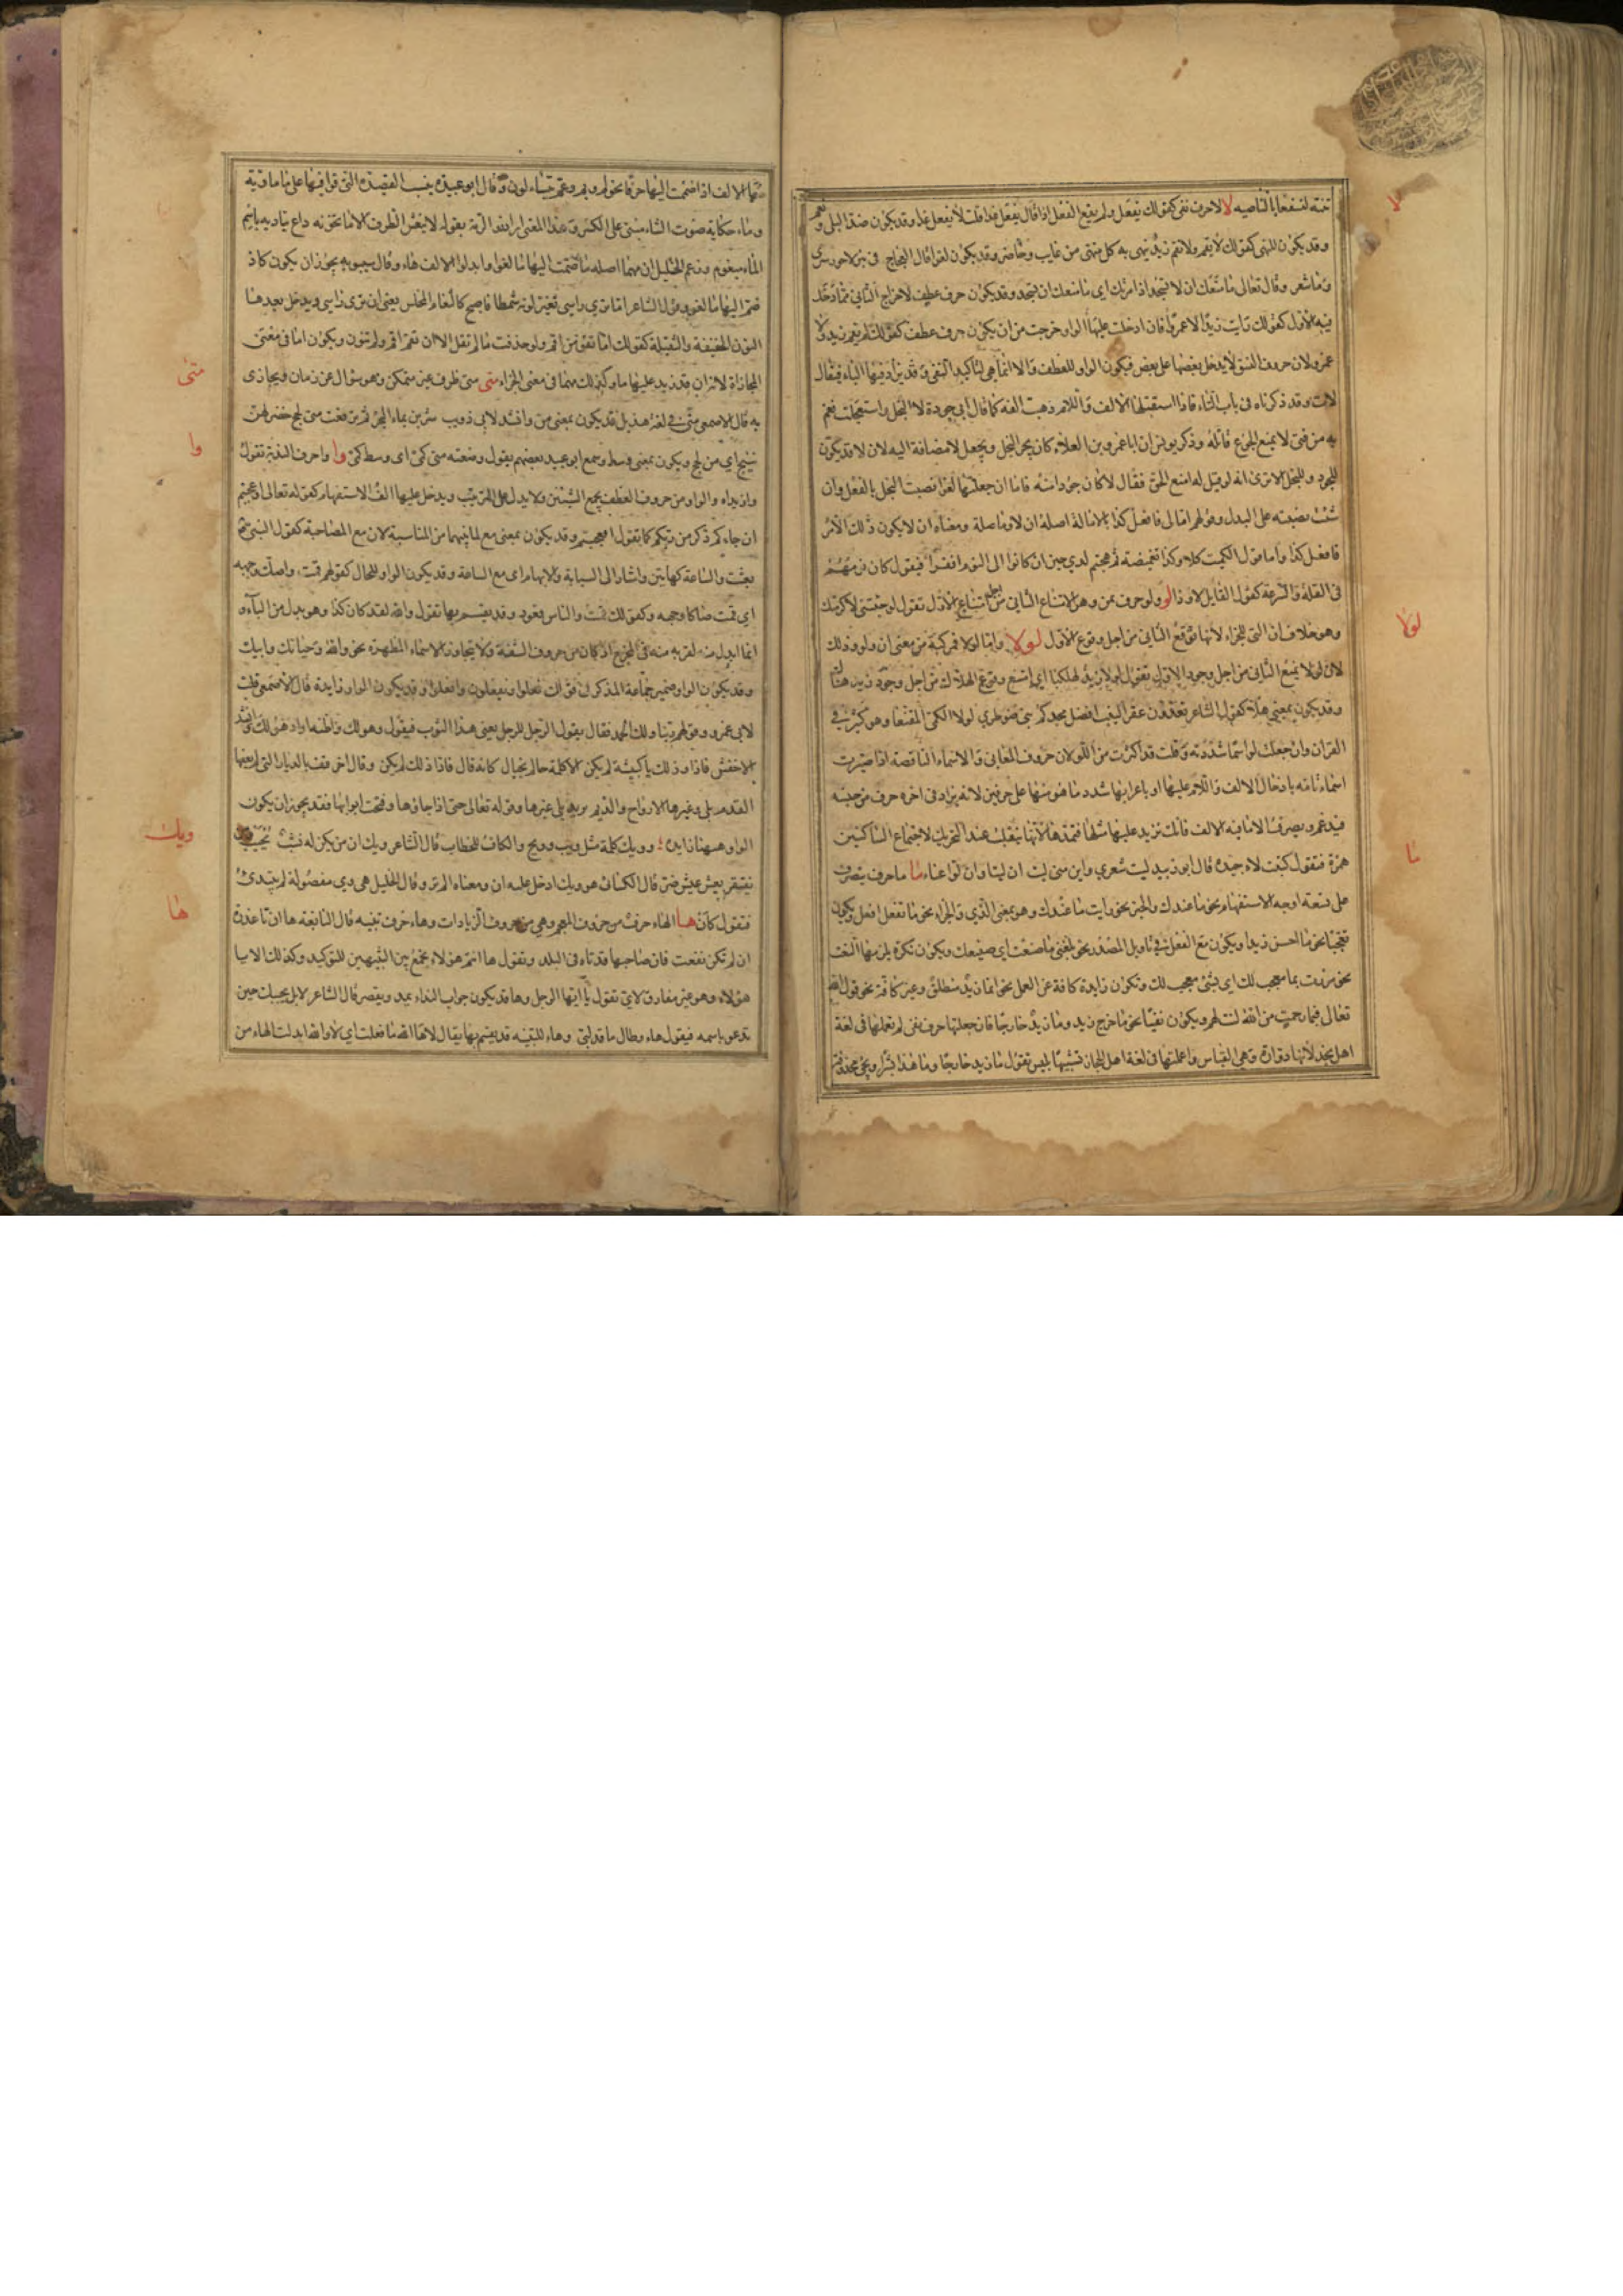 تنته لنسفعا بالناصيه لا لا حرف نفى كقولك يفعل ولم يقع الفعل اذا قال يفعل غدا قلت لا يفعل غدا وقد يكون ضدا لبلى ونعم
وقد يكون للنهى كقولك لا يقم ولا تقم زيد ينهى به كل منهى من غايب وحاضر وقد يكون لغوا قال العجاج فى بئر لا حور سرى
وما شعر وقال تعالى ما منعك ان لا تسجد اذ امرتك اى ما منعك ان تسجد وقد يكون حرف عطف لاخراج الثانى مما دخل
فيه الاول كقولك رايت زيدا لا عمرا فان ادخلت عليها الواو خرجت من ان يكون حرف عطف كقولك لم يقم زيد ولا
عمرو لان حروف النسق لا يدخل بعضها على بعض فيكون الواو للعطف ولا انما هى لتاكيد النفى وقد يزاد فيها التاء فيقال
لات وقد ذكرناه فى باب التاء فاذا استقبلها الالف واللام ذهبت الفه كما قال ابى جوده لا البخل واستعجلت نعم
به من فتى لا يمنع الجوع قاتله وذكر يونس ان ابا عمرو بن العلاء كان يجر البخل ويجعل لا مضافة اليه لان لا قد يكون
للجود وللبخل الا ترى انه لو قيل له امنع الحق فقال لا كان جودا منه فاما ان جعلتها لغوا نصبت البخل بالفعل وان
شئت نصبته على البدل وقولهم امالى فافعل كذا بالامالة اصله ان لا وما صلة ومعناه ان لا يكون ذلك الامر
فافعل كذا واما قول الكميت كلا وكذا تغميضة ثم هجتم لدى حين ان كانوا الى النوم افقرا فيقول كان نومهم
فى القلة والسرعة كقول القايل لا وذا لو ولو حرف تمن وهو لامتناع الثانى من اجل امتناع الاول تقول لو جئتنى لاكرمتك
وهو خلاف ان التى للجزاء لانها توقع الثانى من اجل وقوع الاول لولا واما لولا فمركبة من معنى ان ولو وذلك
لان لولا تمنع الثانى من اجل وجود الاول تقول لولا زيد لهلكنا اى امتنع وقوع الهلاك من اجل وجود زيد هناك
وقد يكون بمعنى هلا كقول الشاعر تعدون عقر النيب افضل مجدكم بنى ضوطرى لولا الكمى المقنعا وهو كثير فى
القران وان جعلت لو اسما شددته وقلت قد اكثرت من اللو لان حروف المعانى والاسماء الناقصة اذا صيرت
اسماء تامه بادخال الالف واللام عليها او باعرابها شدد ما هو منها على حرفين لانه يزاد فى اخره حرف من جنسه
فيدغم ويصرف الا ما فيه الالف فانك تزيد عليها مثلها فتمدها لانها تنقلب عند التحريك لاجتماع الساكنين
همزة فتقول كتبت لاء جيدة قال ابو زبيد ليت شعرى واين منى ليت ان ليتا وان لوا عناء ما ما حرف يتصرف
على تسعة اوجه الاستفهام نحو ما عندك والخبر نحو رايت ما عندك وهو بمعنى الذى والجزاء نحو ما تفعل افعل ويكون
تعجبا نحو ما احسن زيدا ويكون مع الفعل فى تاويل المصدر نحو بلغنى ما صنعت اى صنيعك ويكون نكرة يلزمها النعت
نحو مررت بما معجب لك اى بشئ معجب لك وتكون زايدة كافة عن العمل نحو انما زيد منطلق وغير كافة نحو قول الله
تعالى فبما رحمة من الله لنت لهم ويكون نفيا نحو ما خرج زيد وما زيد خارجا فان جعلتها حرف نفى لم تعملها فى لغة
اهل نجد لانها دوارة وهى القياس واعملتها فى لغة اهل الحجاز تشبيها بليس تقول ما زيد خارجا وما هذا بشرا ويجئ محذوفة
لا
لولا
ما
منها الالف اذا ضممت اليها حرفا نحو لم وبم وعم يتساءلون وقال ابو عبيده ينسب القصيدة التى قوافيها على ما ماوية
وماء حكاية صوت الشاء مبنى على الكسر وهذا المعنى اراد ذو الرمة بقوله لا ينعش الطرف الا ما تخونه داع يناديه باسم
الماء مبغوم وزعم الخليل ان مهما اصله ما ضمت اليها ما لغوا وابدلوا الالف هاء وقال سيبويه يجوز ان يكون كاذ
ضم اليها ما لغو وقول الشاعر اما ترى راسى تغير لونه شمطا فاصبح كالثغام المخلس يعنى ان ترى راسى ويدخل بعدها
النون الخفيفة والثقيلة كقولك اما تقومن اقم ولو حذفت ما لم تقل الا ان تقم اقم ولم تنون ويكون اما فى معنى
المجازاة لانه ان قد زيد عليها ما وكذلك مهما فى معنى الجزاء متى متى ظرف غير متمكن وهو سؤال عن زمان ويجازى
به قال الاصمعى متى فى لغة هذيل قد يكون بمعنى من وانشد لابى ذويب شربن بماء البحر ثم ترفعت متى لجج خضر لهن
نئيج اى من لجج ويكون بمعنى وسط وسمع ابو عبيد بعضهم يقول وضعته متى كمى اى وسط كمى وا وا حرف الندبة تقول
وا زيداه والواو من حروف العطف يجمع الشيئين ولا يدل على الترتيب ويدخل عليها الف الاستفهام كقوله تعالى اوعجبتم
ان جاءكم ذكر من ربكم كما تقول افعجبتم وقد يكون بمعنى مع لما بينهما من المناسبة لان مع المصاحبة كقول النبى
بعثت والساعة كهاتين واشار الى السبابة والابهام اى مع الساعة وقد يكون الواو للحال كقولهم قمت واصك وجهه
اى قمت صاكا وجهه وكقولك قمت والناس قعود وقد يقسم بها تقول والله لقد كان كذا وهو بدل من الباء و
انما ابدل منه لقربه منه فى المخرج اذ كان من حروف الشفة ولا يتجاوز الاسماء المظهرة نحو والله وحياتك وابيك
وقد يكون الواو ضمير جماعة المذكر فى قولك فعلوا ويفعلون وافعلوا وقد يكون الواو زايدة قال الاصمعى قلت
لابى عمرو وقولهم ربنا ولك الحمد فقال يقول الرجل للرجل بعنى هذا الثوب فيقول وهو لك واظنه اراد هو لك وانشد
الاخفش فاذا وذلك يا كبيشة لم يكن الا كلمة حالم بخيال كانه قال فاذا ذلك لم يكن وقال اخر قف بالديار التى لم يعفها
القدم بلى وغيرها الارواح والديم يريد بلى غيرها وقوله تعالى حتى اذا جاؤها وفتحت ابوابها فقد يجوز ان يكون
الواو هيهنا زايدة وويك كلمة مثل ويب وويح والكاف للخطاب قال الشاعر ويك ان من يكن له نشب يحبب ومن
يفتقر يعش عيش ضر قال الكسائى هو ويك ادخل عليه ان ومعناه الم تر وقال الخليل هى وى مفصولة ثم يبتدئ
فتقول كان ها الهاء حرف من حروف المعجم وهى من حروف الزيادات وهاء حرف تنبيه قال النابغة ها ان تا عذرة
ان لم تكن نفعت فان صاحبها قد تاه فى البلد وتقول ها انتم هؤلاء يجمع بين التنبيهين للتوكيد وكذلك الا يا
هؤلاء وهو غير مفارق لاى تقول يا ايها الرجل وها قد يكون جواب النداء يمد ويقصر قال الشاعر لا بل يجيبك حين
تدعو باسمه فيقول هاء وطال ما قد لبى وهاء للتنبيه قد يقسم بها يقال لاها الله ما فعلت اى لا والله ابدلت الهاء من
متى
وا
ويك
ها